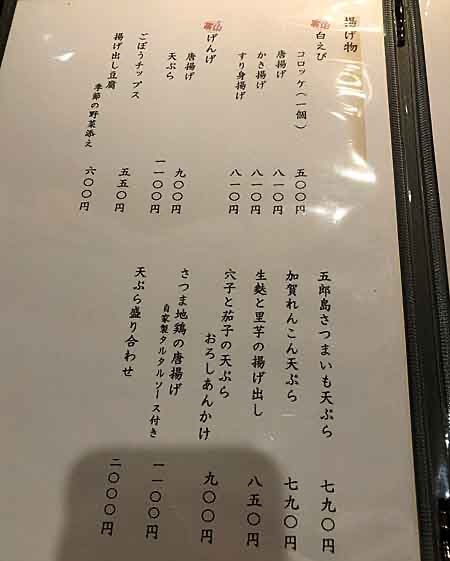 揚げ物
富山 白えび
コロッケ(一個) 五〇〇円
唐揚げ 八一〇円
かき揚げ 八一〇円
すり身揚げ 八一〇円
富山 げんげ
唐揚げ 九〇〇円
天ぷら 一一〇〇円
ごぼうチップス 五五〇円
揚げ出し豆腐
季節の野菜添え 六〇〇円
五郎島さつまいも天ぷら 七九〇円
加賀れんこん天ぷら 七九〇円
生麩と里芋の揚げ出し 八五〇円
穴子と茄子の天ぷら
おろしあんかけ 九〇〇円
さつま地鶏の唐揚げ
自家製タルタルソース付き 一一〇〇円
天ぷら盛り合わせ 二〇〇〇円